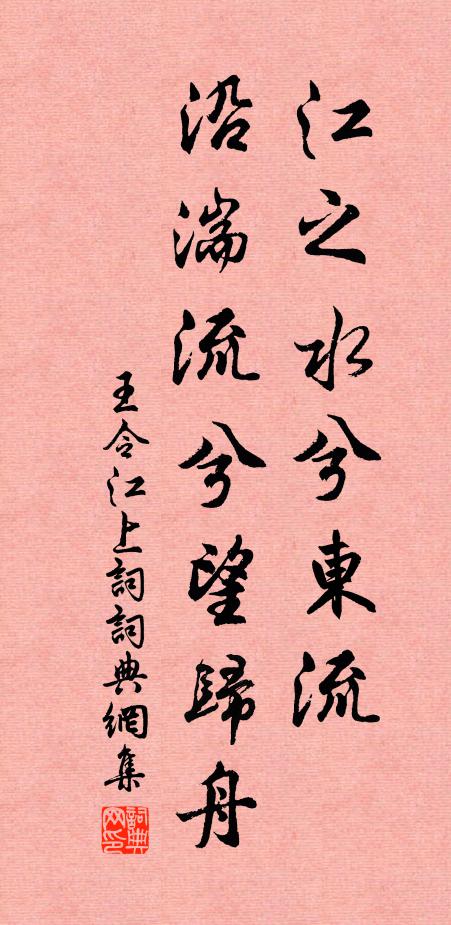 江之水兮東流
沿湍流兮望歸舟
王令江上詞詞典網集
詞典网印